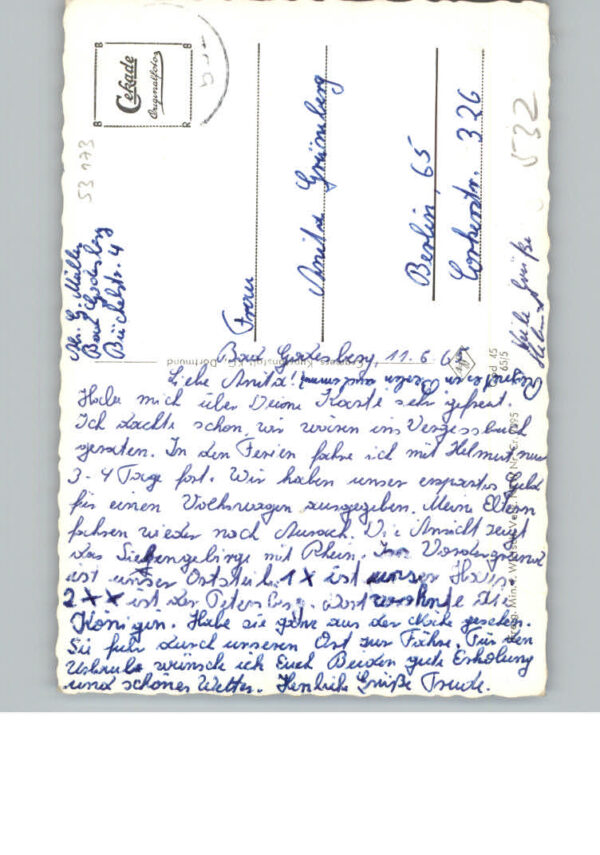 Cekade
Originalfotos
53 173
532
Abs. G. Müller
Bad Godesberg
Büchelstr. 4
Frau
Anita Grüneberg
Berlin 65
326
Viele Grüße
Helmut
Bad Godesberg, 11. 6.
Liebe Anita!
Habe mich über Deine Karte sehr gefreut.
Ich dachte schon, wir wären ins Vergessbuch
geraten. In den Ferien fahre ich mit Helmut nur
3-4 Tage fort. Wir haben unser erspartes Geld
für einen Volkswagen ausgegeben. Meine Eltern
fahren wieder nach Aurach. Die Ansicht zeigt
das Siebengebirge mit Rhein. Im Vordergrund
ist unser Ortsteil. 1 X ist unser Haus
2 XX ist der Petersberg. Dort wohnte die
Königin. Habe sie ganz aus der Nähe gesehen.
Sie fuhr durch unseren Ort zur Fähre. Für den
Urlaub wünsche ich Euch Beiden gute Erholung
und schönes Wetter. Herzliche Grüße Trude.